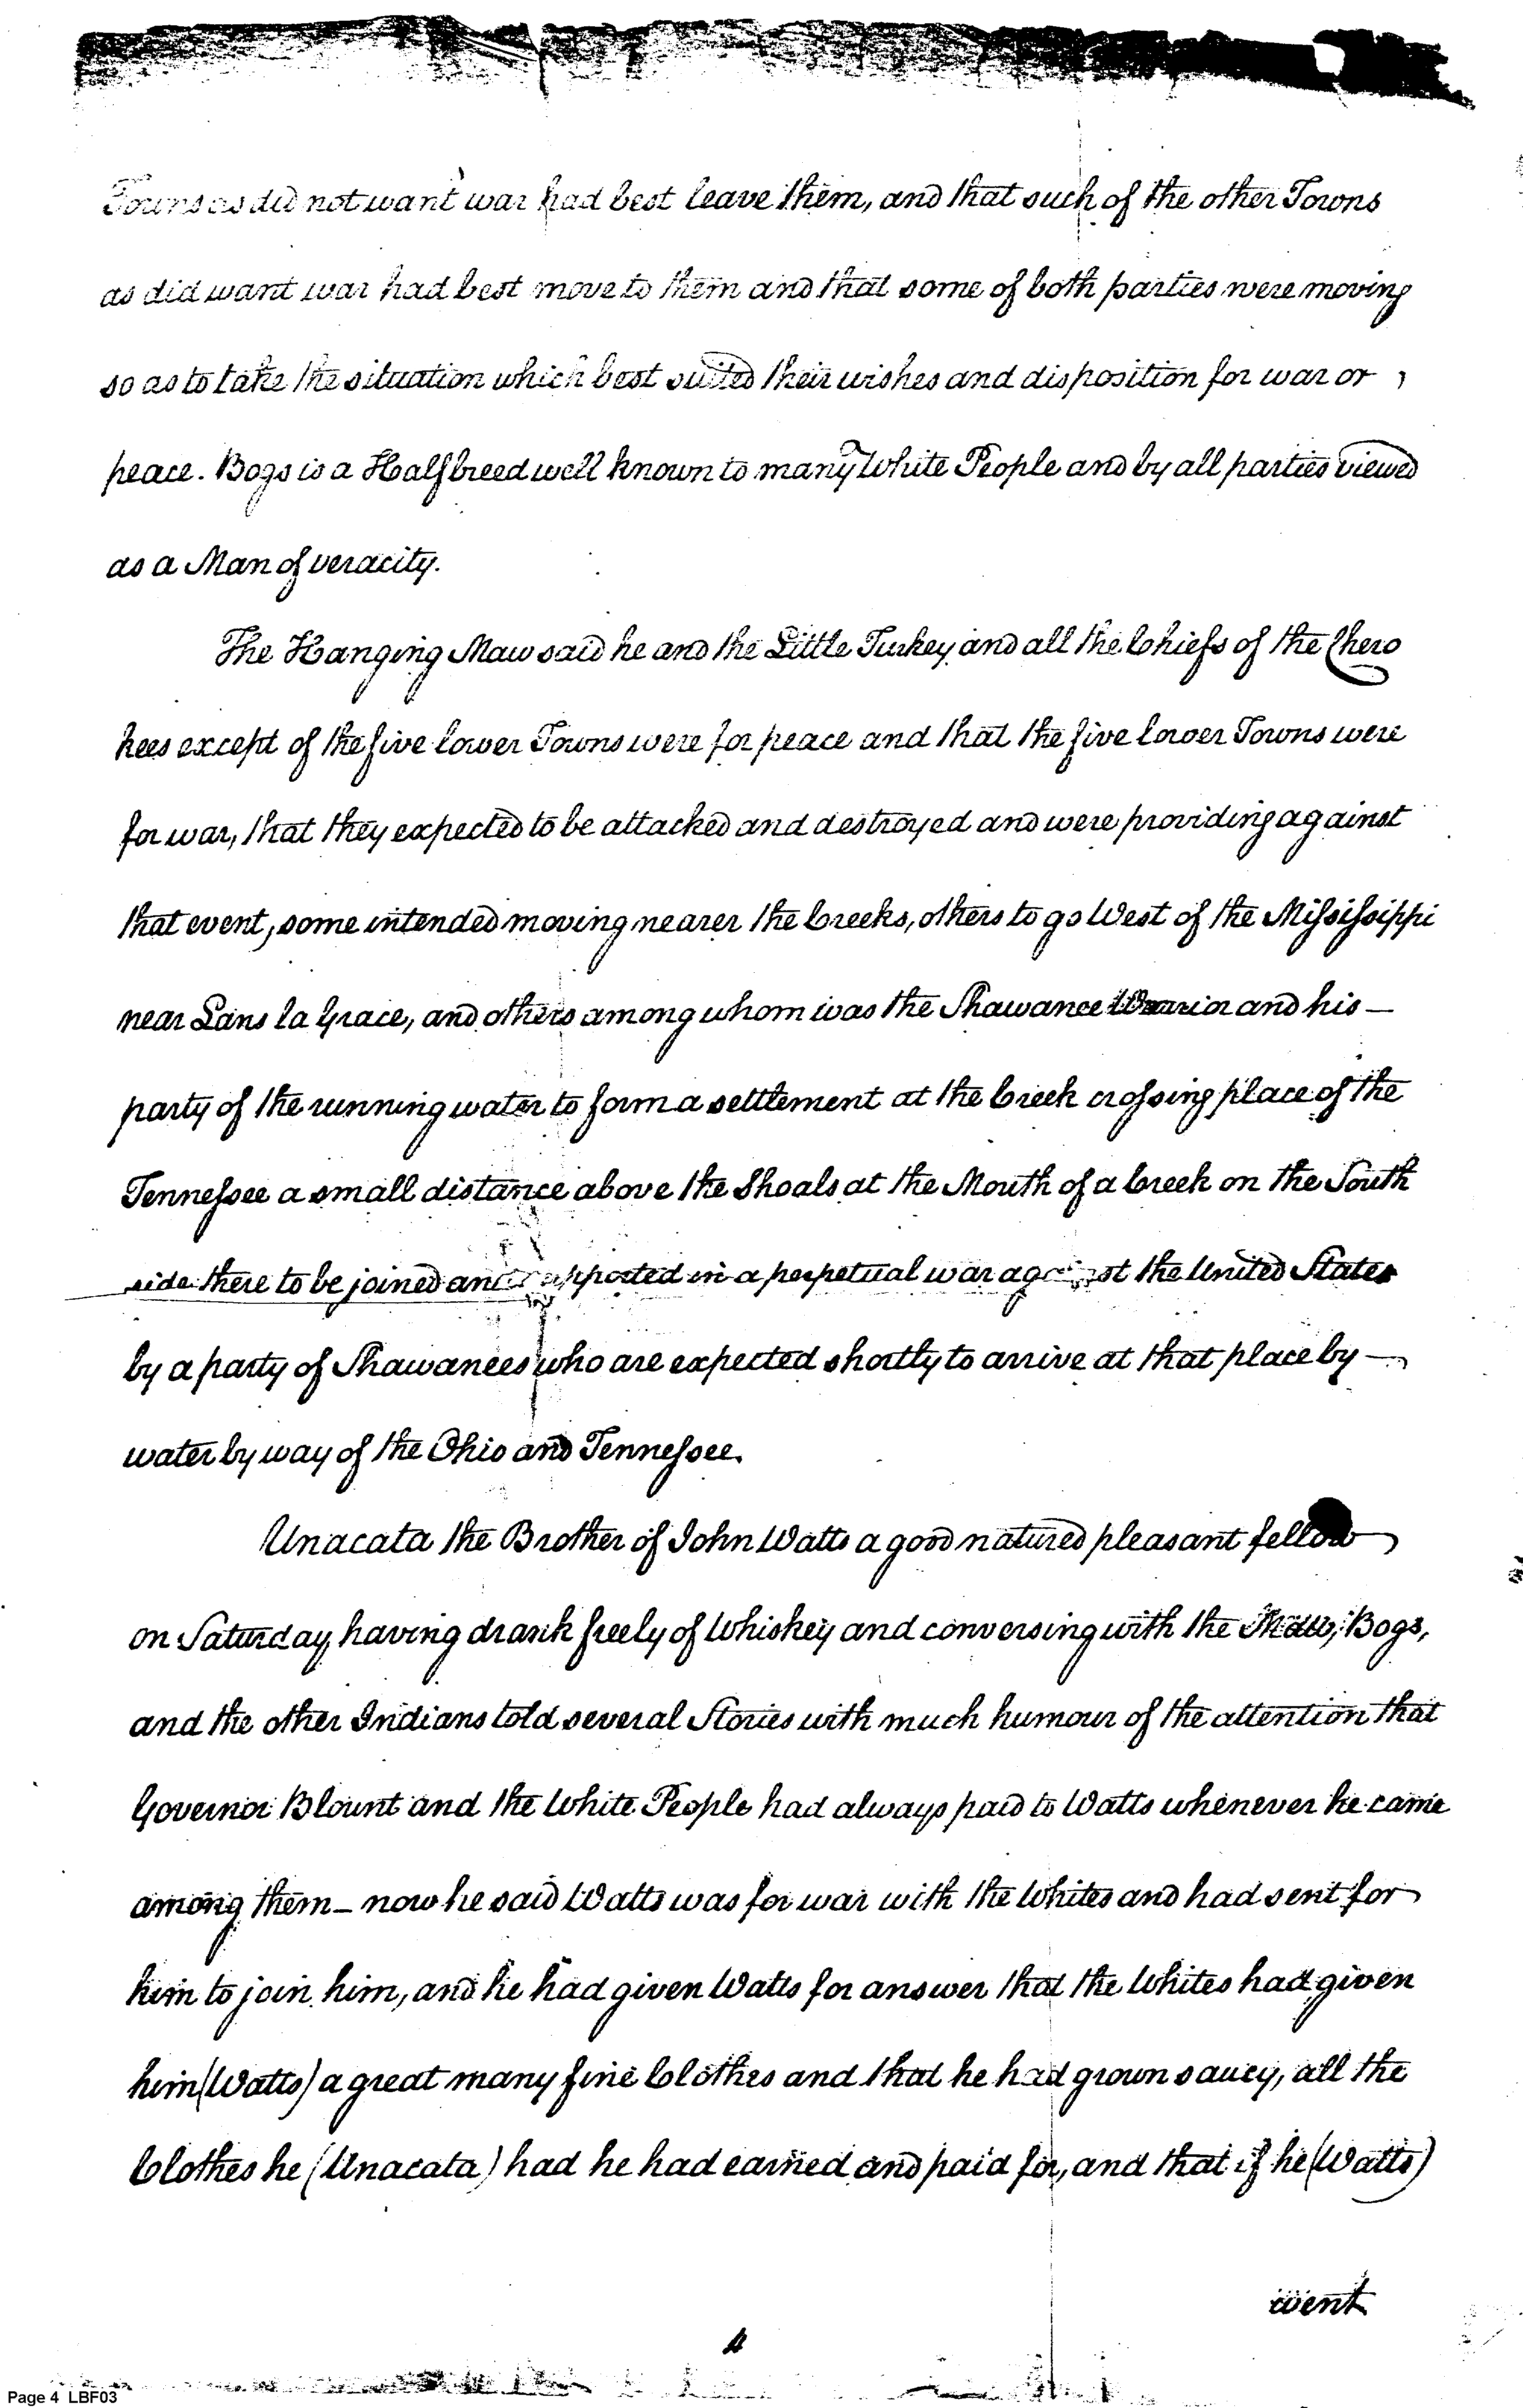 Towns as did not want war had best leave them, and that such of the other Towns
as did want war had best move to them and that some of both parties were moving
so as to take the situation which best suited their wishes and disposition for war or
peace. Bogs is a Half breed well known to many White People and by all parties viewed
as a Man of veracity.
The Hanging Maw said he and the Little Turkey and all the Chiefs of the Chero
kees except of the five lower Towns were for peace and that the five lower Towns were
for war, that they expected to be attacked and destroyed and were providing against
that event, some intended moving nearer the Creeks, others to go West of the Mississippi
near Lans la Grace, and others among whom was the Shawanee Warrior and his —
party of the running water to form a settlement at the Creek crossing place of the
Tennessee a small distance above the Shoals at the Mouth of a Creek on the South
side there to be joined and supported in a perpetual war against the United States
by a party of Shawanees who are expected shortly to arrive at that place by —
water by way of the Ohio and Tennessee.
Unacata the Brother of John Watts a good natured pleasant fellow
on Saturday having drank freely of Whiskey and conversing with the Maw, Bogs,
and the other Indians told several Stories with much humour of the attention that
Governor Blount and the White People had always paid to Watts whenever he came
among them — now he said Watts was for war with the Whites and had sent for
him to join him, and he had given Watts for answer that the Whites had given
him (Watts) a great many fine Clothes and that he had grown saucy, all the
Clothes he (Unacata) had he had earned and paid for, and that if he (Watts)
went
4
Page 4 LBF03